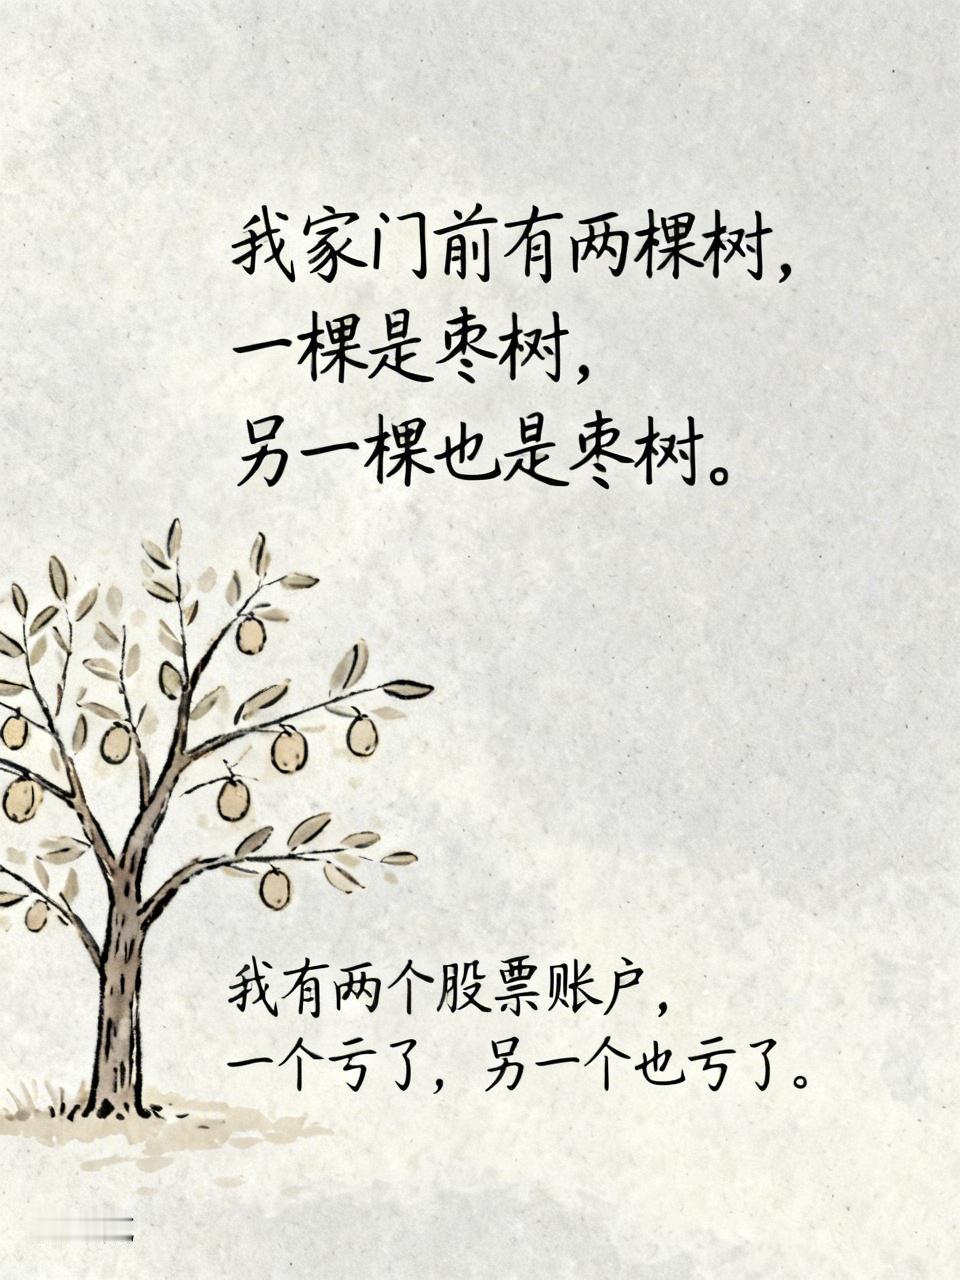 我家门前有两棵树，
一棵是枣树，
另一棵也是枣树。
我有两个股票账户，
一个亏了，另一个也亏了。